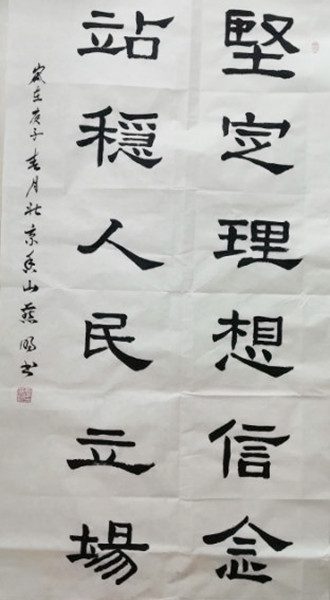 堅定理想信念
站穩人民立場
歲在庚子春月北京香山燕鴻書